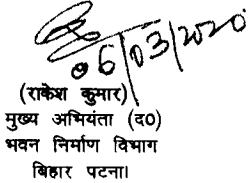 06/03/2020
(राकेश कुमार)
मुख्य अभियंता (द0)
भवन निर्माण विभाग
बिहार पटना।